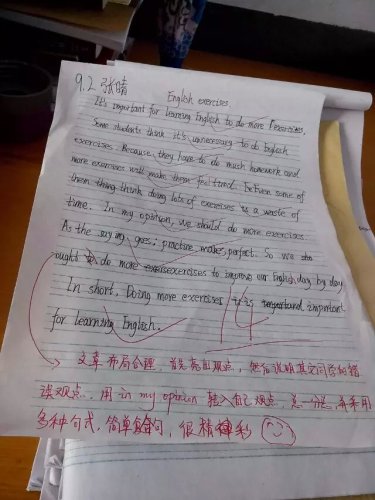 9.2 张晴
English exercises.
It's important for learning English to do more exercises.
Some students think it's unnecessary to do English
exercises. Because, they have to do much homework and
more exercises will make them feel tired. Even some of
them thing think doing lots of exercises is a waste of
time. In my opinion, we should do more exercises.
As the saying goes: practice makes perfect. So we
ought to do more exercises to improve our English day by day
In short, Doing more exercises is important
for learning English.
14
文章布局合理,首先亮出观点,然后说明其它同学的错
误观点,用 in my opinion 转入自己观点,总一分总,并采用
多种句式,简单句,很精彩